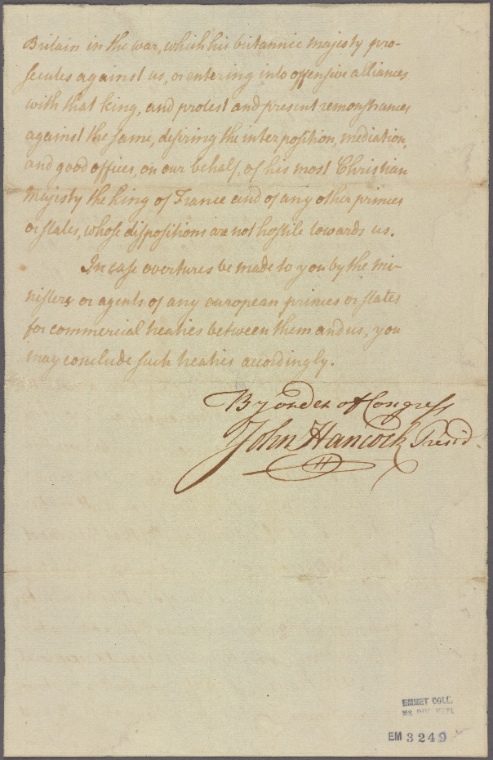 Britain in the war, which his britannic majesty pro-
secutes against us, or entering into offensive alliances
with that king, and protest and present remonstrances
against the same, desiring the interposition, mediation,
and good offices, on our behalf, of his most Christian
majesty the king of France and of any other princes
or states, whose dispositions are not hostile towards us.
In case overtures be made to you by the mi-
nisters or agents of any european princes or states
for commercial treaties between them and us, you
may conclude such treaties accordingly.
By order of Congress
John Hancock Presid.
EMMET COLL.
EM 3249